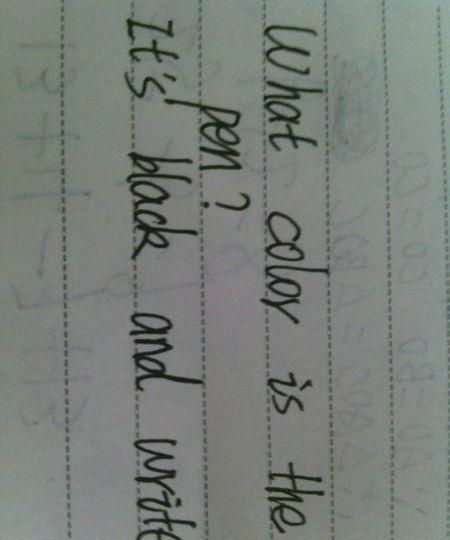 What color is the
pen?
It's black and